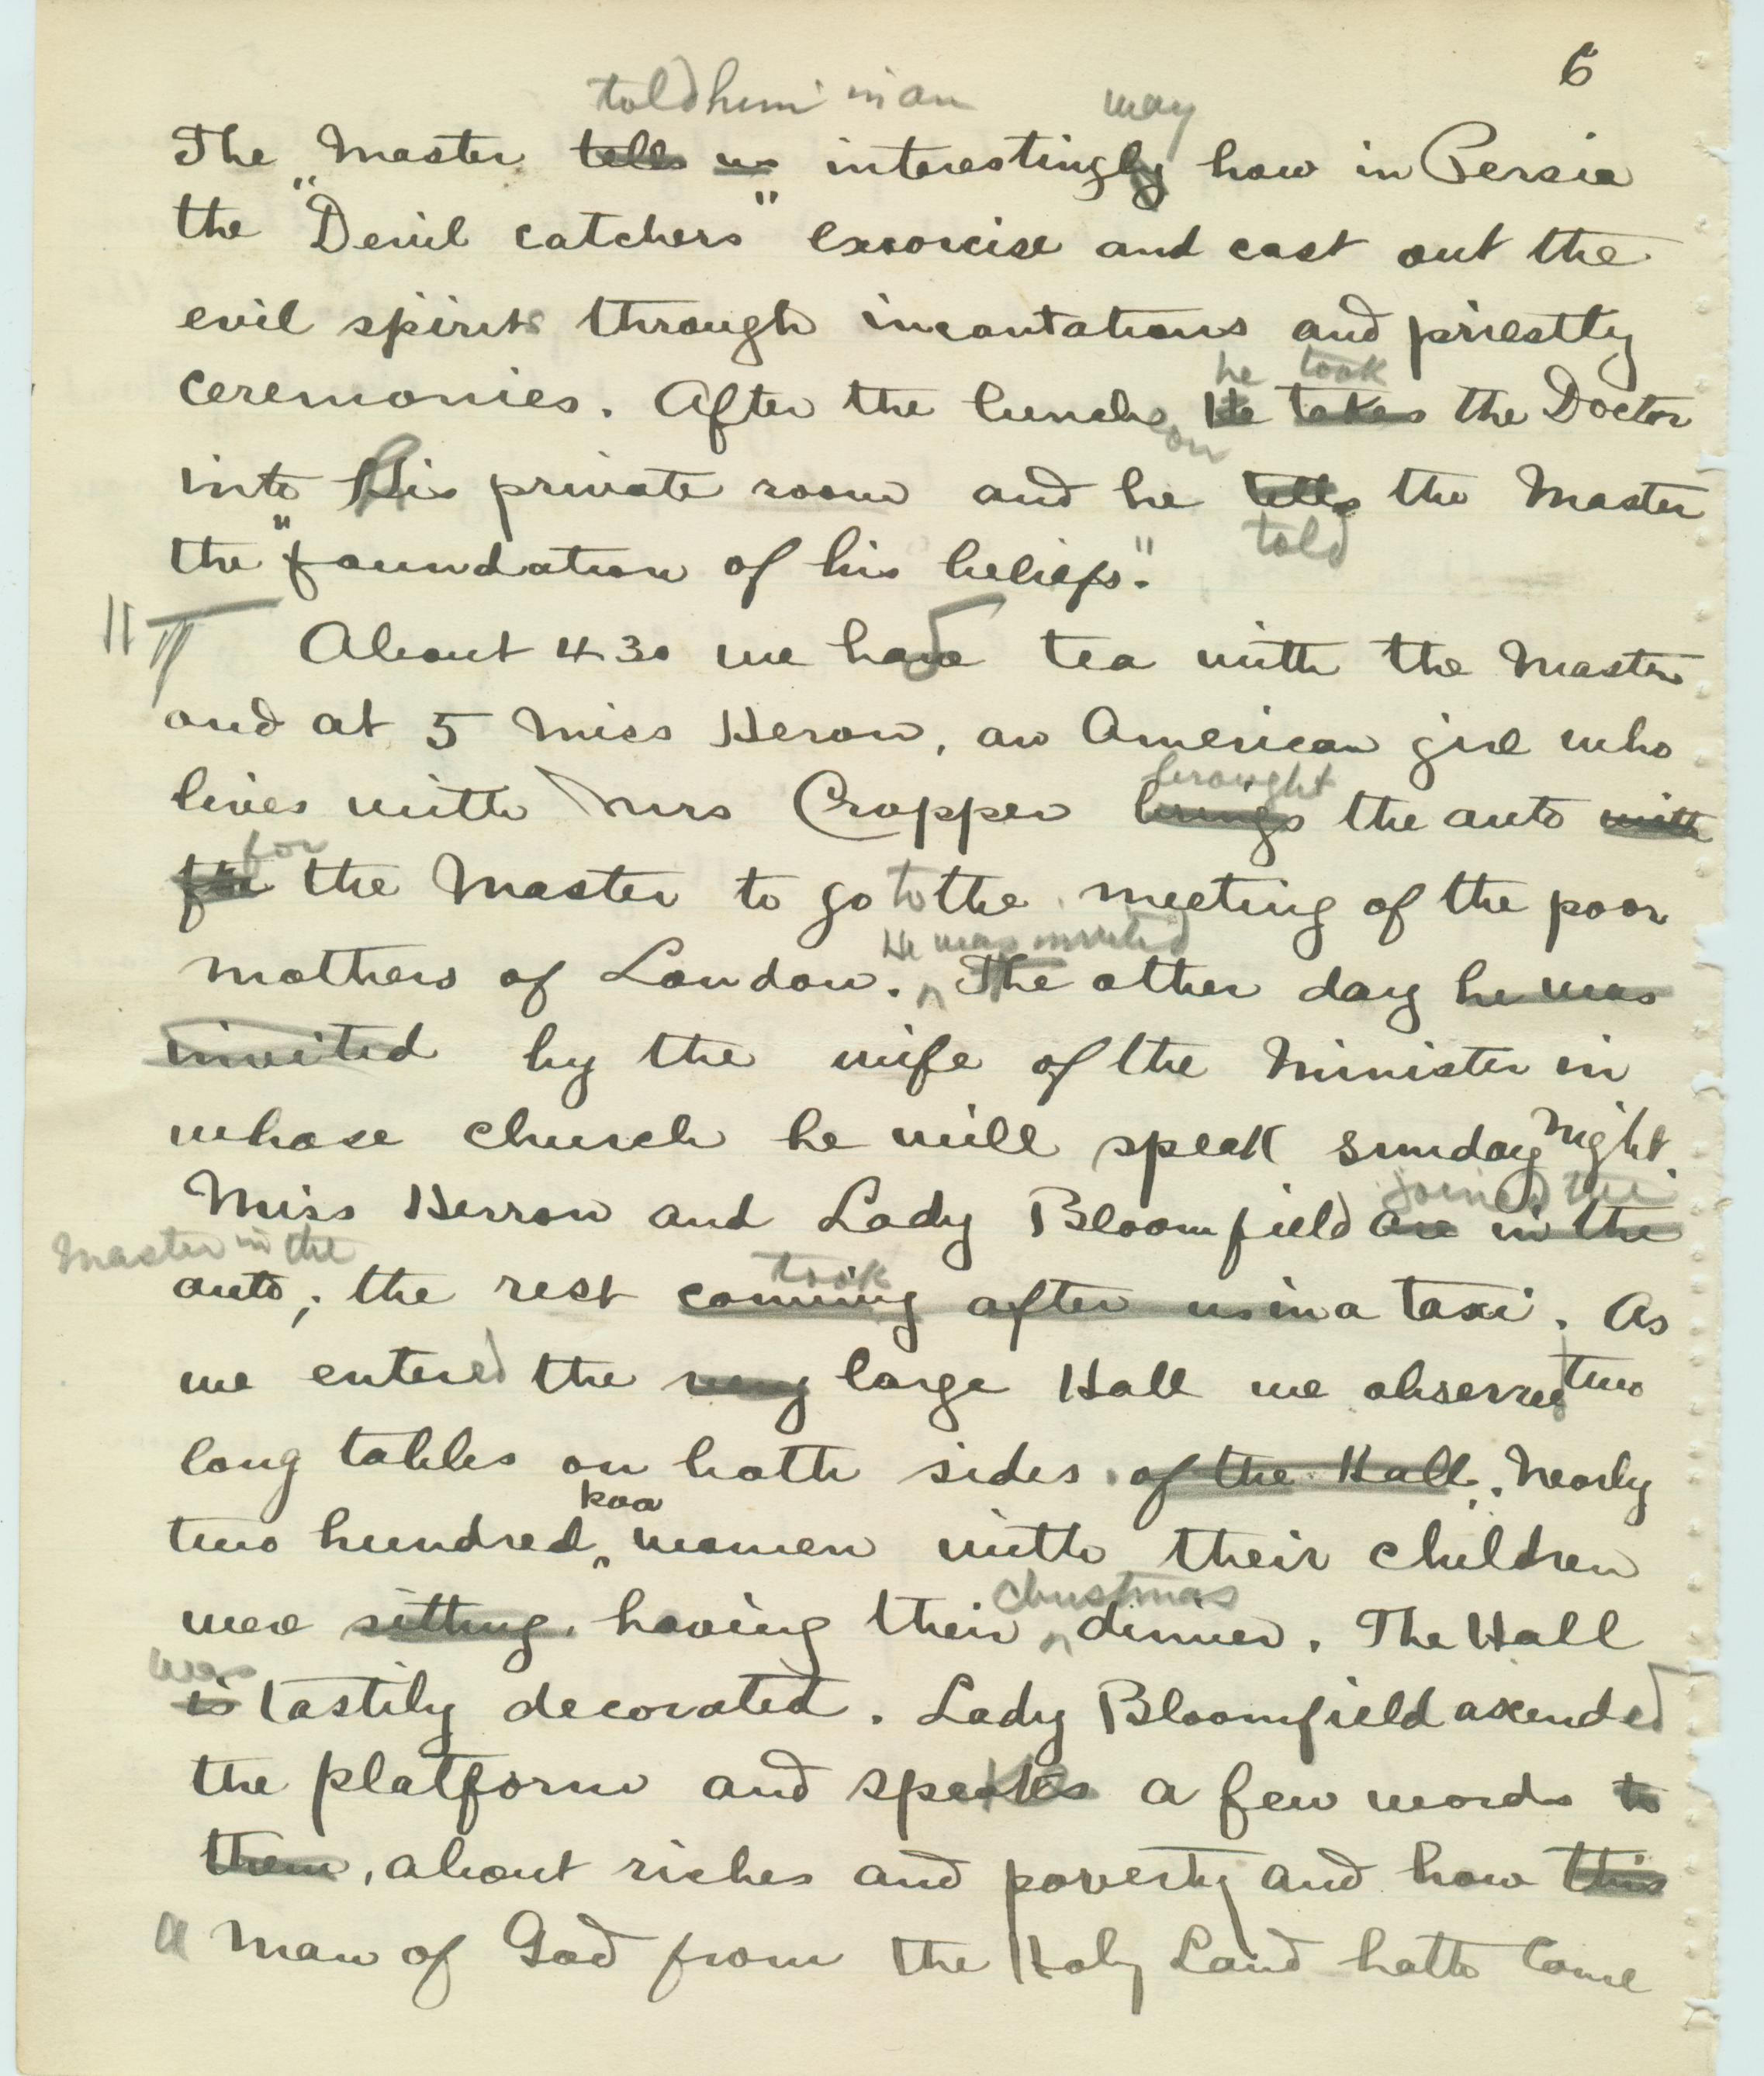 6
told him in an may
The Master tells us interestingly how in Persia
the "Devil catchers" exorcise and cast out the
evil spirits through incantations and priestly
he took
ceremonies. After the luncheon He takes the Doctor
into His private room and he tells the Master
told
the "foundation of his beliefs."
About 4 30 we have tea with the Master
and at 5 Miss Heron, an American girl who
brought
lives with Mrs Cropper brings the auto with
for
for the Master to go to the meeting of the poor
He was invited
mothers of London. The other day he was
invited by the wife of the Minister in
whose church he will speak Sunday Night.
joined the
Miss Herron and Lady Bloomfield are in the
Master in the
took
auto; the rest coming after us in a taxi. As
we entered the very large Hall we observed two
long tables on both sides of the Hall. Nearly
poor
two hundred women with their children
Christmas
were sitting, having their dinner. The Hall
was
is tastily decorated. Lady Bloomfield ascended
the platform and speaks a few words to
them, about riches and poverty and how this
a Man of God from the Holy Land hath come